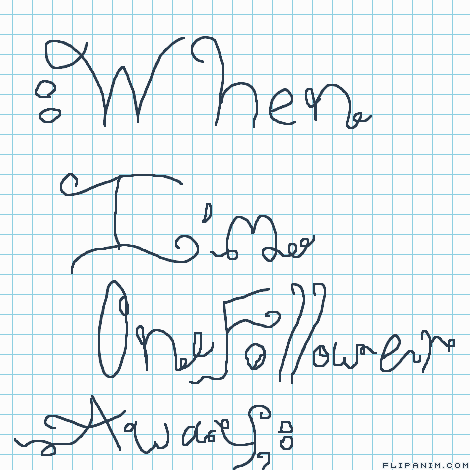 :When
I'm
One Follower
Away:
FLIPANIM.COM